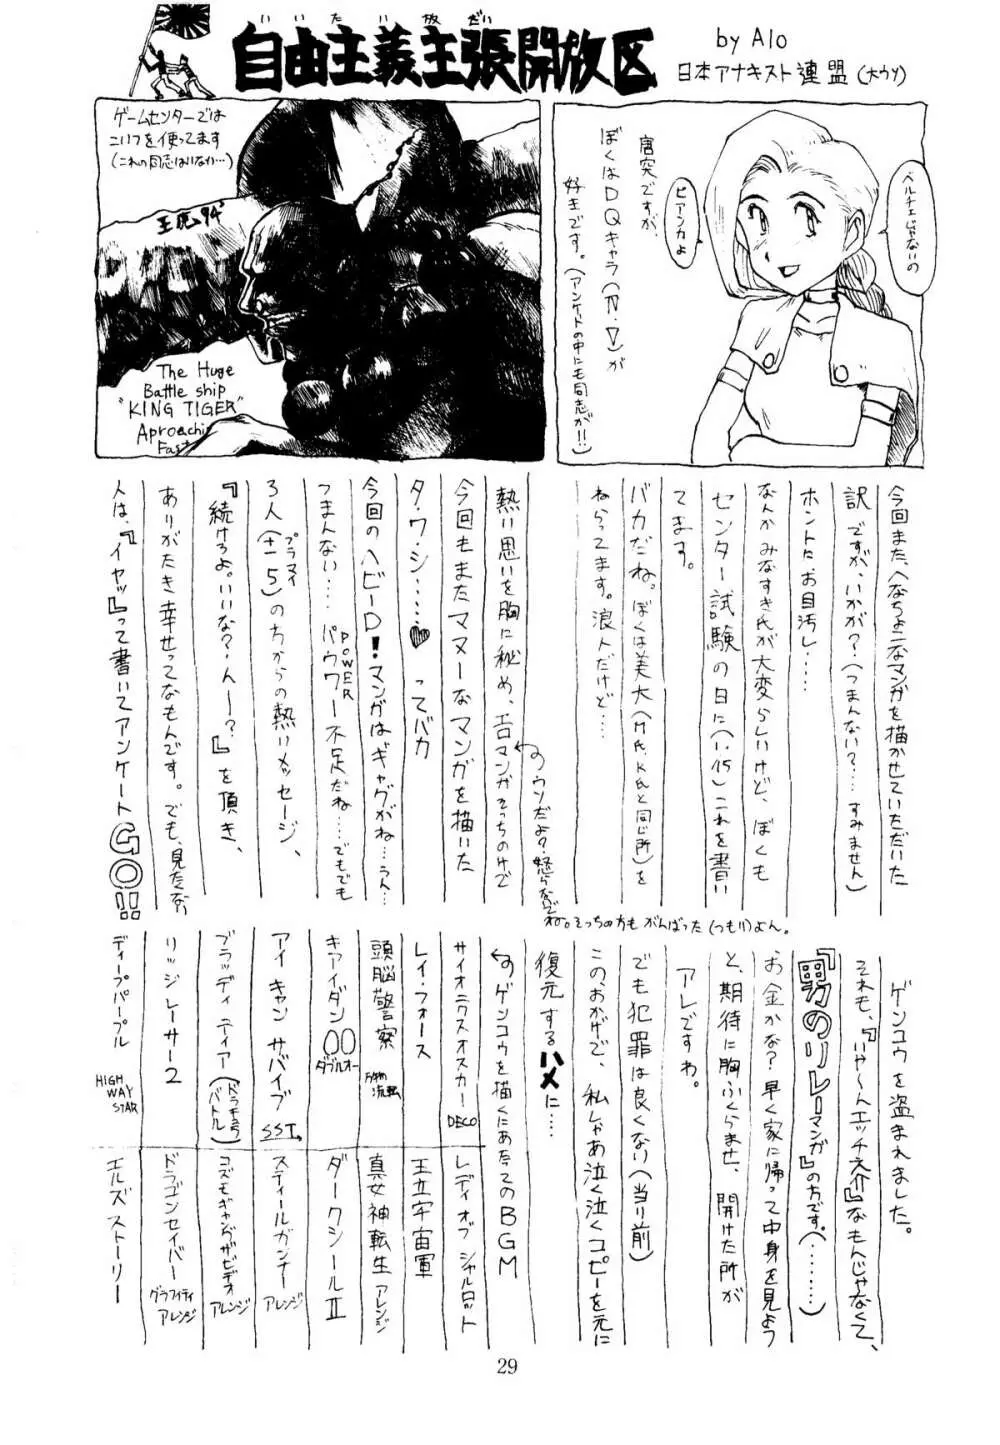 いいたい放だい
自由主義主張開放区
by Alo
日本アナキスト連盟(大ウソ)
ベルチェじゃないの
ビアンカよ
唐突ですが、
ぼくはDQキャラ(Ⅳ・Ⅴ)が
好きです。(アンケートの中にも同志が!!)
ゲームセンターでは
こいつを使ってます
(これの同志はいない…)
王虎94'
The Huge
Battle ship
"KING TIGER"
Aproachin
Fast
今回また、へなちょこなマンガを描かせていただいた
訳ですが、いかが?(つまんない?…すみません)
ホントにお目汚し……
なんかみなすき氏が大変らしいけど、ぼくも
センター試験の日に(1.15)これを書い
てます。
バカだね。ぼくは美大(M氏、K氏と同じ所)を
ねらってます。浪人だけど…
熱い思いを胸に秘め、エロマンガそっちのけで
ウソだよ?怒らないで
ね。そっちの方もがんばった(つもり)よん。
今回もまたマヌーなマンガを描いた
タ・ワ・シ……♥ってバカ
今回のヘビーD!マンガはギャグがね…うん…
つまんない…パウワー不足だね…でもでも
POWER
3人(±5)の方からの熱いメッセージ、
プラマイ
『続けろよ。いいな?んー?』を頂き、
ありがたき幸せってなもんです。でも、見たない
人は、『イヤッ』って書いてアンケートGO!!
ゲンコウを盗まれました。
それも、『いや〜んエッチ之介』なもんじゃなくて、
『男のリレーマンガ』の方です。(………)
お金かな?早く家に帰って中身を見よう
と、期待に胸ふくらませ、開けた所が
アレですわ。
でも犯罪は良くない(当り前)
この、おかげで、私しゃあ泣く泣くコピーを元に
復元するハメに…
そのゲンコウを描くにあたってのBGM
サイオニクスオスカー DECO
レイ・フォース
頭脳警察 万物流転
キアイダン00 ダブルオー
アイ キャン サバイブ SST
ブラッディ ティアー(ドラキュラバトル)
リッジレーサー2
ディープパープル HIGH WAY STAR
レディオブシャルロット
王立宇宙軍
真女神転生 アレンジ
ダークシールⅡ
スティールガンナー アレンジ
コズモギャングザビデオ アレンジ
ドラゴンセイバー グラフィティ アレンジ
エルズストーリー
29